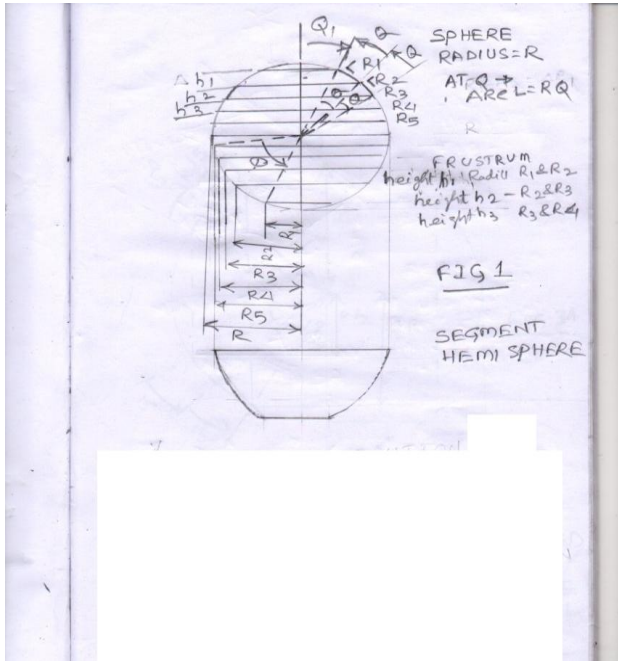 Q1
Q
Q
SPHERE
RADIUS=R
AT Q →
ARC L=RQ
R1
R2
R3
R4
R5
Δh1
h2
h3
Q
Q
Φ
R
FRUSTRUM
height h1 Radii R1&R2
height h2 - R2&R3
height h3 - R3&R4
R3
R4
R5
R
FIG 1
SEGMENT
HEMI SPHERE